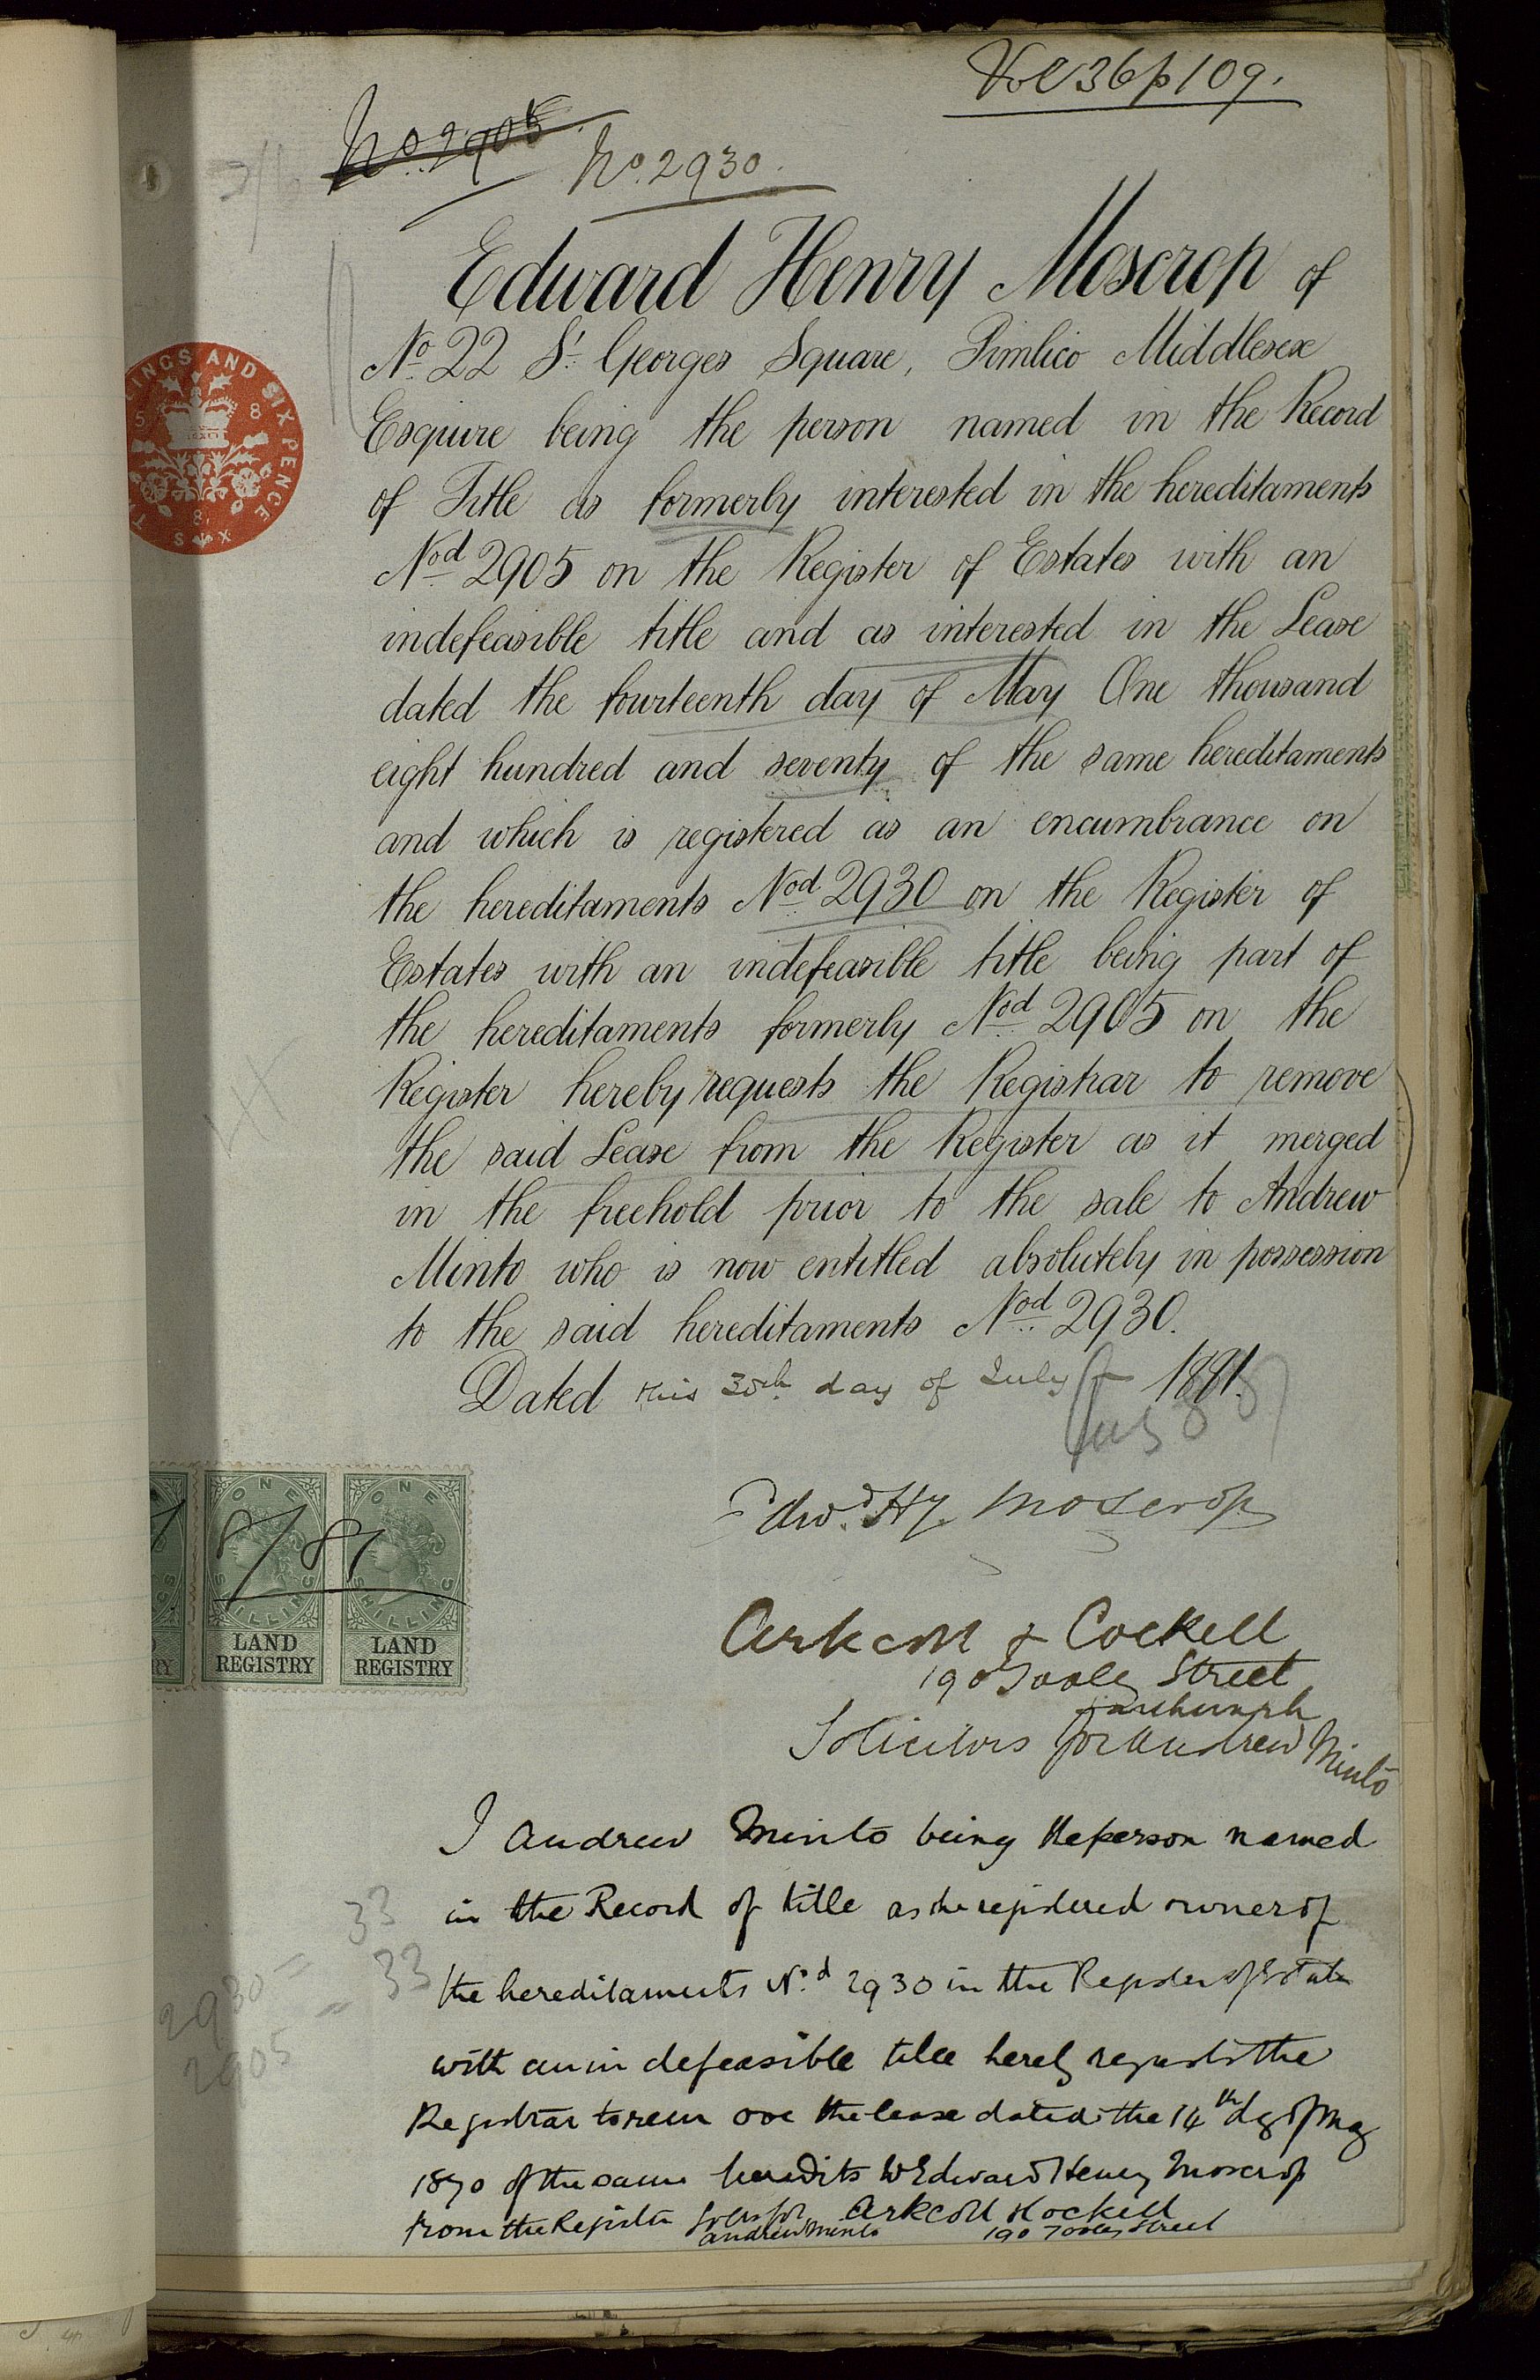 Vol 36 p 109.
No. 2905
No. 2930.
Edward Henry Moscrop of
No. 22 St. Georges Square, Pimlico Middlesex
Esquire being the person named in the Record
of Title as formerly interested in the hereditaments
Nod 2905 on the Register of Estates with an
indefeasible title and as interested in the Lease
dated the fourteenth day of May One thousand
eight hundred and seventy of the same hereditaments
and which is registered as an encumbrance on
the hereditaments Nod 2930 on the Register of
Estates with an indefeasible title being part of
the hereditaments formerly Nod 2905 on the
Register hereby requests the Registrar to remove
the said Lease from the Register as it merged
in the freehold prior to the sale to Andrew
Minto who is now entitled absolutely in possession
to the said hereditaments Nod 2930.
Dated this 30th day of July 1881.
Edwd. Hy. Moscrop
Arkcoll & Cockell
190 Tooley Street
Southwark
Solicitors for Andrew Minto
LINGS AND SIX PENCE
5 8
8
SIX
ONE SHILLING
LAND REGISTRY
ONE SHILLING
LAND REGISTRY
8/81
I Andrew Minto being the person named
in the Record of title as the registered owner of
the hereditaments No.d 2930 in the Register of Estates
with an indefeasible title hereby requests the
Registrar to remove the lease dated the 14th day of May
1870 of the same heredits to Edward Henry Moscrop
from the Register Solrs for Arkcoll & Cockell
Andrew Minto 190 Tooley Street
33
33
2930 =
2905 =